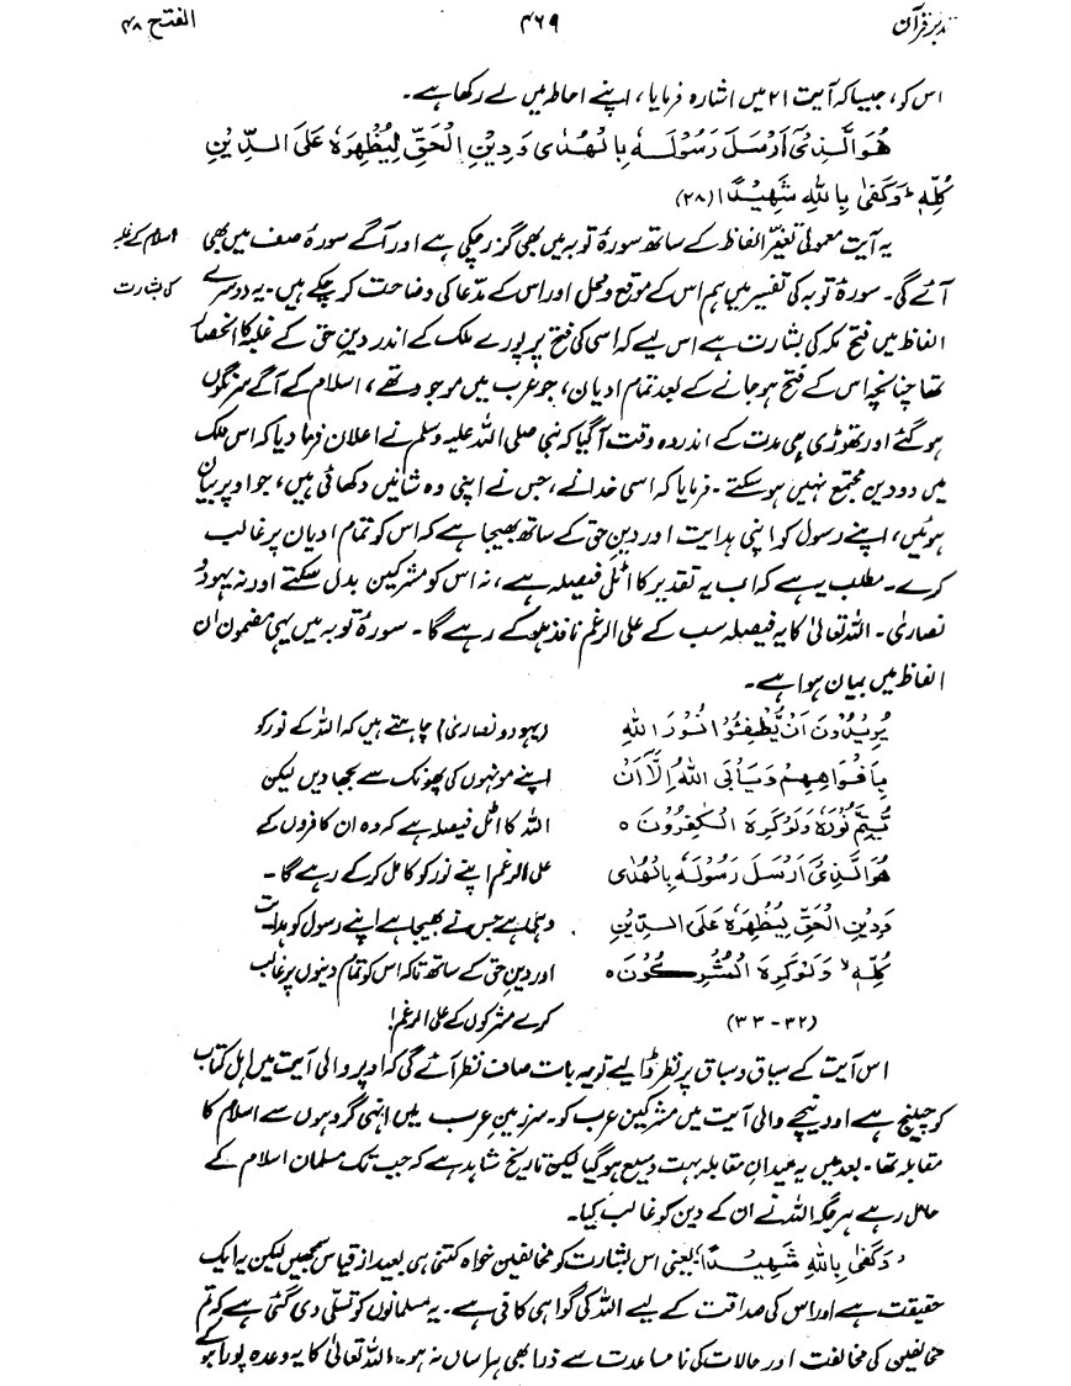 تدبر قرآن ۴۶۹ الفتح ۴۸
اس کو، جیسا کہ آیت ۲۱ میں اشارہ فرمایا، اپنے احاطہ میں لے رکھا ہے۔
هُوَ الَّذِیْٓ اَرْسَلَ رَسُوْلَهٗ بِالْهُدٰی وَدِیْنِ الْحَقِّ لِیُظْهِرَهٗ عَلَی الدِّیْنِ
كُلِّهٖ ؕ وَكَفٰی بِاللّٰهِ شَهِیْدًا (۲۸)
یہ آیت معمولی تغیّر الفاظ کے ساتھ سورۂ توبہ میں بھی گزر چکی ہے اور آگے سورۂ صف میں بھی
اسلام کے غلبہ
آئے گی۔ سورۂ توبہ کی تفسیر میں ہم اس کے موقع و محل اور اس کے مدّعا کی وضاحت کر چکے ہیں۔ یہ دوسرے
کی بشارت
الفاظ میں فتح مکہ کی بشارت ہے اس لیے کہ اسی کی فتح پر پورے ملک کے اندر دینِ حق کے غلبہ کا انحصار
تھا چنانچہ اس کے فتح ہو جانے کے بعد تمام ادیان، جو عرب میں موجود تھے، اسلام کے آگے سرنگوں
ہو گئے اور تھوڑی ہی مدت کے اندر وہ وقت آ گیا کہ نبی صلی اللہ علیہ وسلم نے اعلان فرما دیا کہ اس ملک
میں دو دین مجتمع نہیں ہو سکتے۔ فرمایا کہ اسی خدا نے، جس نے اپنی وہ شانیں دکھائی ہیں، جو اوپر بیان
ہوئیں، اپنے رسول کو اپنی ہدایت اور دینِ حق کے ساتھ بھیجا ہے کہ اس کو تمام ادیان پر غالب
کرے۔ مطلب یہ ہے کہ اب یہ تقدیر کا اٹل فیصلہ ہے، نہ اس کو مشرکین بدل سکتے اور نہ یہود و
نصاریٰ۔ اللہ تعالیٰ کا یہ فیصلہ سب کے علی الرغم نافذ ہو کے رہے گا۔ سورۂ توبہ میں یہی مضمون ان
الفاظ میں بیان ہوا ہے۔
یُرِیْدُوْنَ اَنْ یُّطْفِـُٔوْا نُوْرَ اللّٰهِ (یہود و نصاریٰ) چاہتے ہیں کہ اللہ کے نور کو
بِاَفْوَاهِهِمْ وَیَاْبَی اللّٰهُ اِلَّآ اَنْ اپنے مونہوں کی پھونک سے بجھا دیں لیکن
یُّتِمَّ نُوْرَهٗ وَلَوْ كَرِهَ الْكٰفِرُوْنَ ہ اللہ کا اٹل فیصلہ ہے کہ وہ ان کافروں کے
هُوَ الَّذِیْٓ اَرْسَلَ رَسُوْلَهٗ بِالْهُدٰی علی الرغم اپنے نور کو کامل کر کے رہے گا۔
وَدِیْنِ الْحَقِّ لِیُظْهِرَهٗ عَلَی الدِّیْنِ وہی ہے جس نے بھیجا ہے اپنے رسول کو ہدایت
كُلِّهٖ ۙ وَلَوْ كَرِهَ الْمُشْرِكُوْنَ ہ اور دینِ حق کے ساتھ تاکہ اس کو تمام دینوں پر غالب
(۳۲-۳۳) کرے مشرکوں کے علی الرغم!
اس آیت کے سیاق و سباق پر نظر ڈالیے تو یہ بات صاف نظر آئے گی کہ اوپر والی آیت میں اہل کتاب
کو چیلنج ہے اور نیچے والی آیت میں مشرکین عرب کو۔ سرزمینِ عرب میں انہی گروہوں سے اسلام کا
مقابلہ تھا۔ بعد میں یہ میدانِ مقابلہ بہت وسیع ہو گیا لیکن تاریخ شاہد ہے کہ جب تک مسلمان اسلام کے
حامل رہے ہر جگہ اللہ نے ان کے دین کو غالب کیا۔
’وَكَفٰی بِاللّٰهِ شَهِیْدًا‘ یعنی اس بشارت کو مخالفین خواہ کتنی ہی بعید از قیاس سمجھیں لیکن یہ ایک
حقیقت ہے اور اس کی صداقت کے لیے اللہ کی گواہی کافی ہے۔ یہ مسلمانوں کو تسلّی دی گئی ہے کہ تم
مخالفین کی مخالفت اور حالات کی نامساعدت سے ذرا بھی ہراساں نہ ہو۔ اللہ تعالیٰ کا یہ وعدہ پورا ہو کے